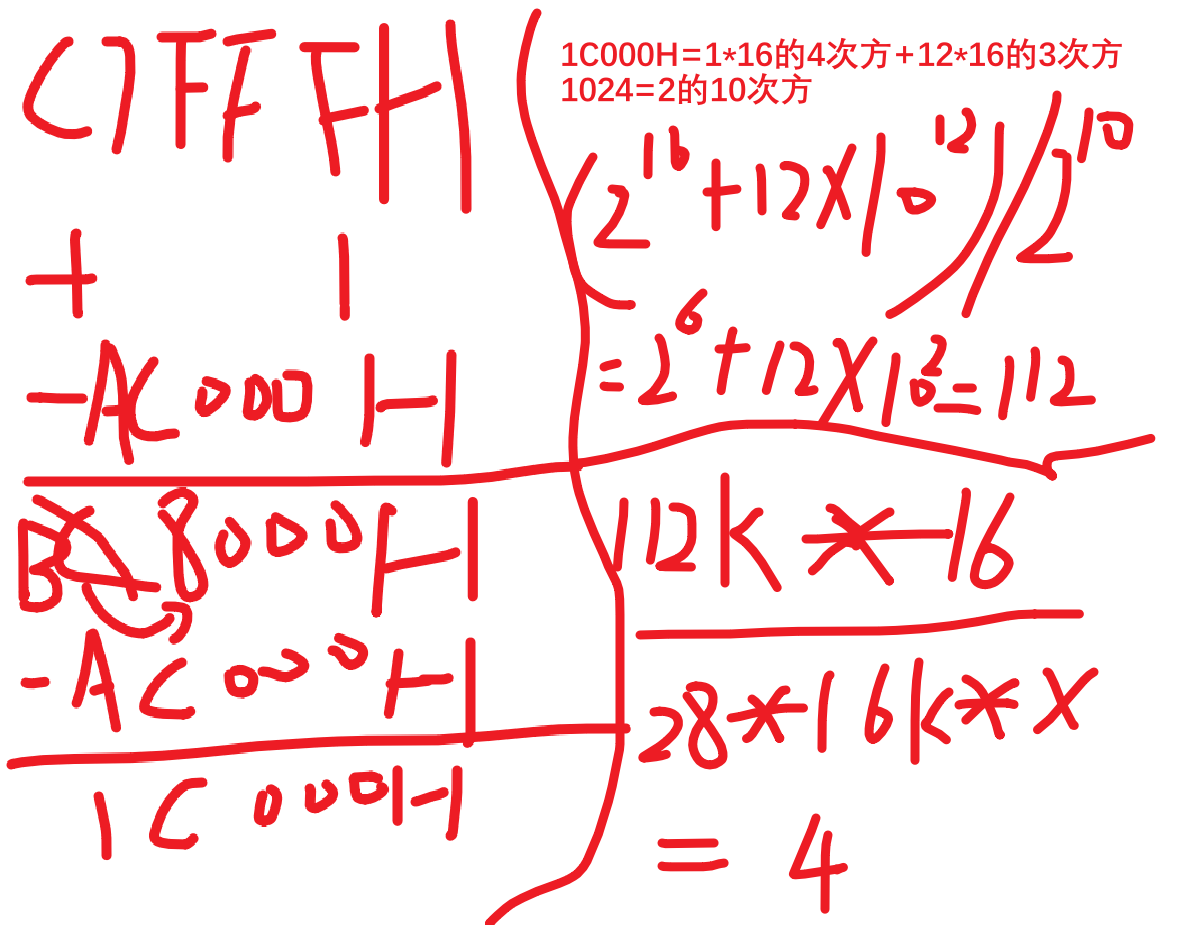 C7FFFH
+ 1
-AC000H
BC8000H
-AC000H
1C000H
1C000H=1*16的4次方+12*16的3次方
1024=2的10次方
(2^16+12X10^12)/2^10
=2^6+12X10^2=112
112K*16
28*16K*X
=4